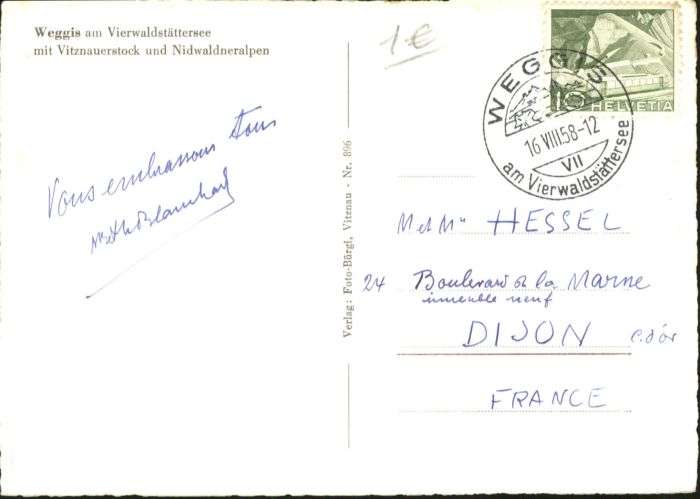 Weggis am Vierwaldstättersee
mit Vitznauerstock und Nidwaldneralpen
1€
WEGGIS
16 VIII.58-12
VII
am Vierwaldstättersee
HELVETIA
Vous embrassons tous
Blanchard
Verlag: Foto-Bürgi, Vitznau - Nr. 896
M et Me HESSEL
24 Boulevard de la Marne
immeuble neuf
DIJON C. d'or
FRANCE